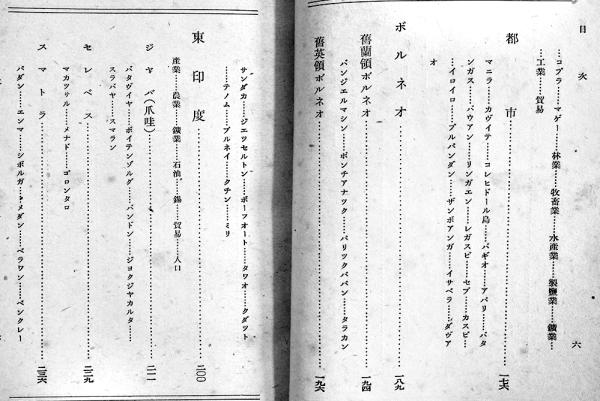 目次
コプラ……マゲー……林業……牧畜業……水産業……製鹽業……鑛業……
工業……貿易
都市……一七六
マニラ……カヴイテ……コレヒドール島……バギオ……アパリ……バタ
ンガス……バウアン……リンガエン……レガスピ……セブ……カスピ……
イロイロ……プルパンダン……ザンボアンガ……イサベラ……ダヴア
オ
ボルネオ……一八九
舊蘭領ボルネオ……一九四
バンジエルマシン……ポンチアナツク……バリツクパパン……タラカン
舊英領ボルネオ……一九六
六
サンダカ……ジエツセルトン……ボーフオート……タワオ……クダツト
……テノム……ブルネイ……クチン……ミリ
東印度……二〇〇
産業……農業……鑛業……石油……錫……貿易……人口
ジヤバ(爪哇)……二一一
バタヴイヤ……ボイテンゾルグ……バンドン……ジヨクジヤカルタ……
スラバヤ……スマラン
セレベス……二二九
マカツサル……メナド……ゴロンタロ
スマトラ……二三六
パダン……エンマ……シボルガ……メダン……ベラワン……ベンクレー